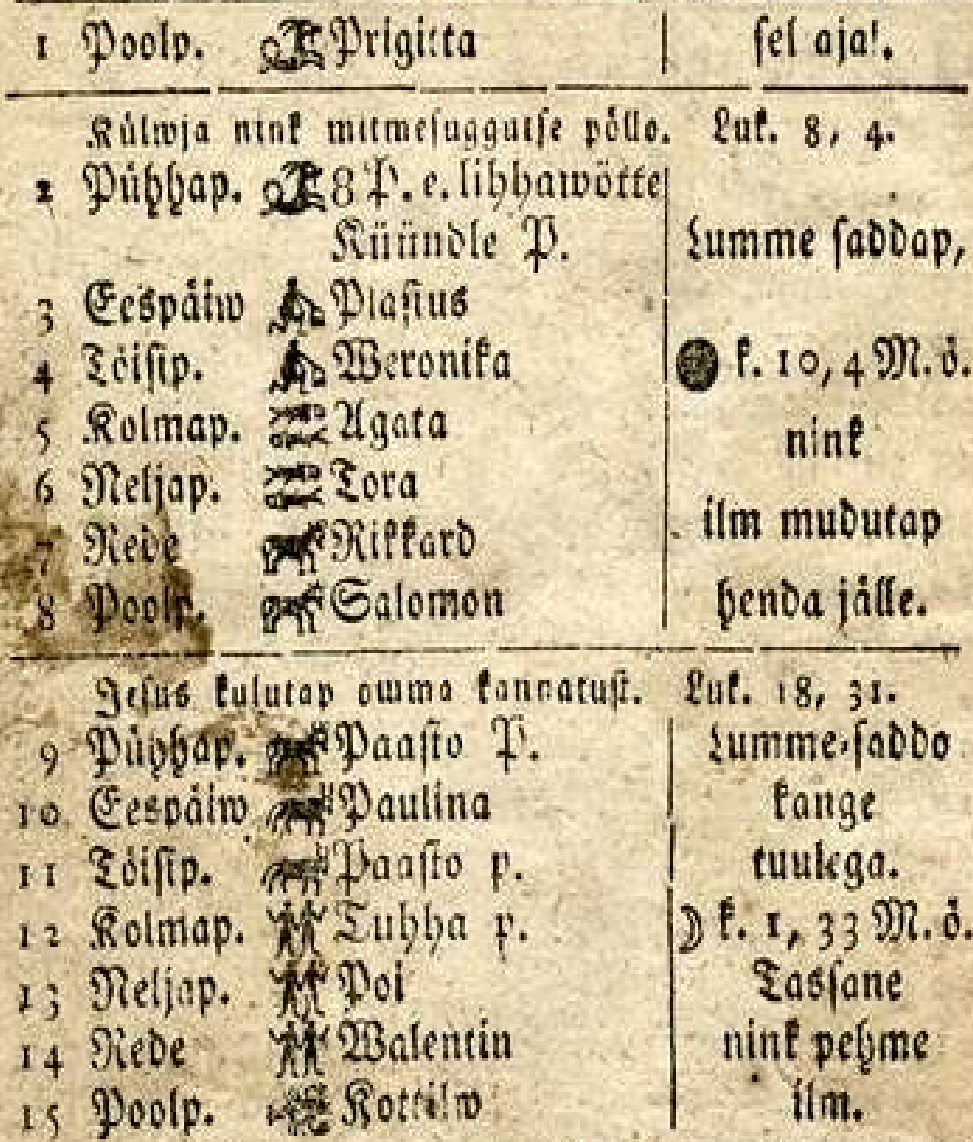 1 Poolp. Prigitta sel aja!.
Külwja nink mitmesuggutse pöllo. Luk. 8, 4.
2 Pühhap. 8 P. e. lihhawötte
Küündle P. Lumme saddap,
3 Eespäiw Plasius
4 Töisip. Weronika k. 10, 4 M. ö.
5 Kolmap. Agata nink
6 Neljap. Tora ilm mudutap
7 Rede Rikkard
8 Poolp. Salomon henda jälle.
Jesus kulutap omma kannatust. Luk. 18, 31.
9 Pühhap. Paasto P. Lumme-saddo
10 Eespäiw Paulina kange
11 Töisip. Paasto p. tuulega.
12 Kolmap. Tuhha p. k. 1, 33 M. ö.
13 Neljap. Poi Tassane
14 Rede Walentin nink pehme
15 Poolp. ilm.